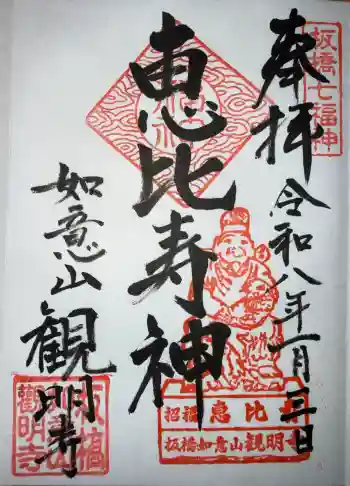 板橋七福神
奉拝
令和八年一月三日
恵比寿神
如意山
観明寺
招福 恵比寿
板橋如意山観明寺